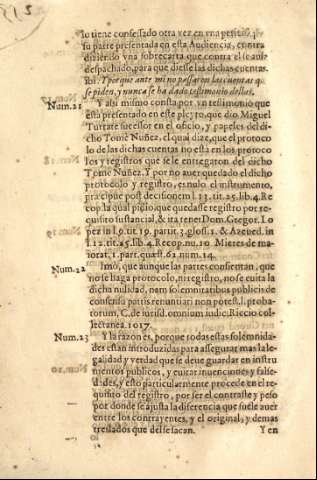 lo tiene confessado otra vez en vna peticiō, q̄
su parte presentada en esta Audiencia, contra
diziendo vna sobrecarta que contra el se auia
despachado, para que diesse las dichas cuentas.
ibi. Y porque ante mi no passaron las cuentas que
se piden, y nunca se ha dado testimonio dellas.
Num.21 Y assi mismo consta por vn testimonio que
està presentado en este pleyto, que dio Miguel
Iturrate sucessor en el oficio, y papeles del di-
cho Tome Nuñez, el qual dize, que el protoco
lo de las dichas cuentas no està en los protoco
los y registros que se le entregaron del dicho
Tome Nuñez. Y por no auer quedado el dicho
protocolo y registro, es nulo el instrumento,
præcipue post decisionem l. 13. tit. 25. lib. 4. Re
cop. la qual pidio, que quedasse registro por re-
quisito sustancial, & ita tenet Dom. Gregor. Lo
pez in l. 9. tit. 19. part. 3. gloss. 1. & Azeued. in
l. 12. tit. 25. lib. 4. Recop. nu. 10 Mieres de ma-
iorat. 1. part. quæst. 62 num. 14.
Num.22 Imò, que aunque las partes consientan, que
no se haga protocolo, ni registro, no se euita la
dicha nulidad, nam solemnitatibus publicis de
consensu partis renuntiari non potest, l. proba-
torum, C. de iurisd. omnium iudic. Riccio col-
lectanea. 1017.
Num.23 Y la razon es, porque todas estas solemnida-
des estan introduzidas para assegurar mas la le-
galidad y verdad que se deue guardar en instru
mentos publicos, y euitar inuenciones y false-
dades, y esto particularmente procede en el re-
quisito del registro, por ser el contraste y peso
por donde se ajusta la diferencia que suele auer
entre los contrayentes, y el original, y demas
treslados que del se sacan. Y en